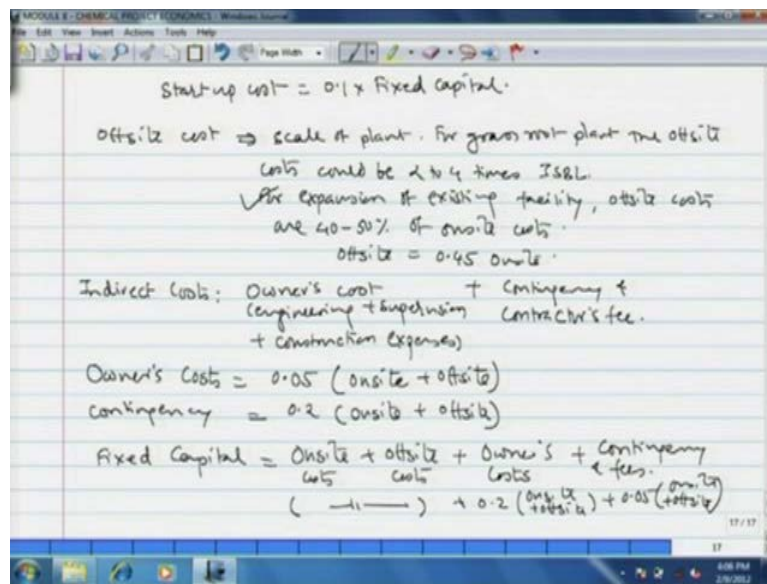 MODULE 8 - CHEMICAL PROJECT ECONOMICS - Windows Journal
File Edit View Insert Actions Tools Help
Page Width
Start up cost = 0.1 x Fixed capital.
Offsite cost ⇒ scale of plant. For grass root plant the offsite
costs could be 2 to 4 times ISBL.
✓ For expansion of existing facility, offsite costs
are 40-50% of onsite costs.
offsite = 0.45 onsite.
Indirect Costs: Owner's cost + Contingency &
(engineering + supervision contractor's fee.
+ construction expenses)
Owner's Costs = 0.05 (onsite + offsite)
contingency = 0.2 (onsite + offsite)
Fixed Capital = Onsite + offsite + Owner's + Contingency
costs costs costs & fees.
( —11— ) + 0.2 (onsite + offsite) + 0.05 (onsite + offsite)
17/17
17
4:08 PM
2/9/2012